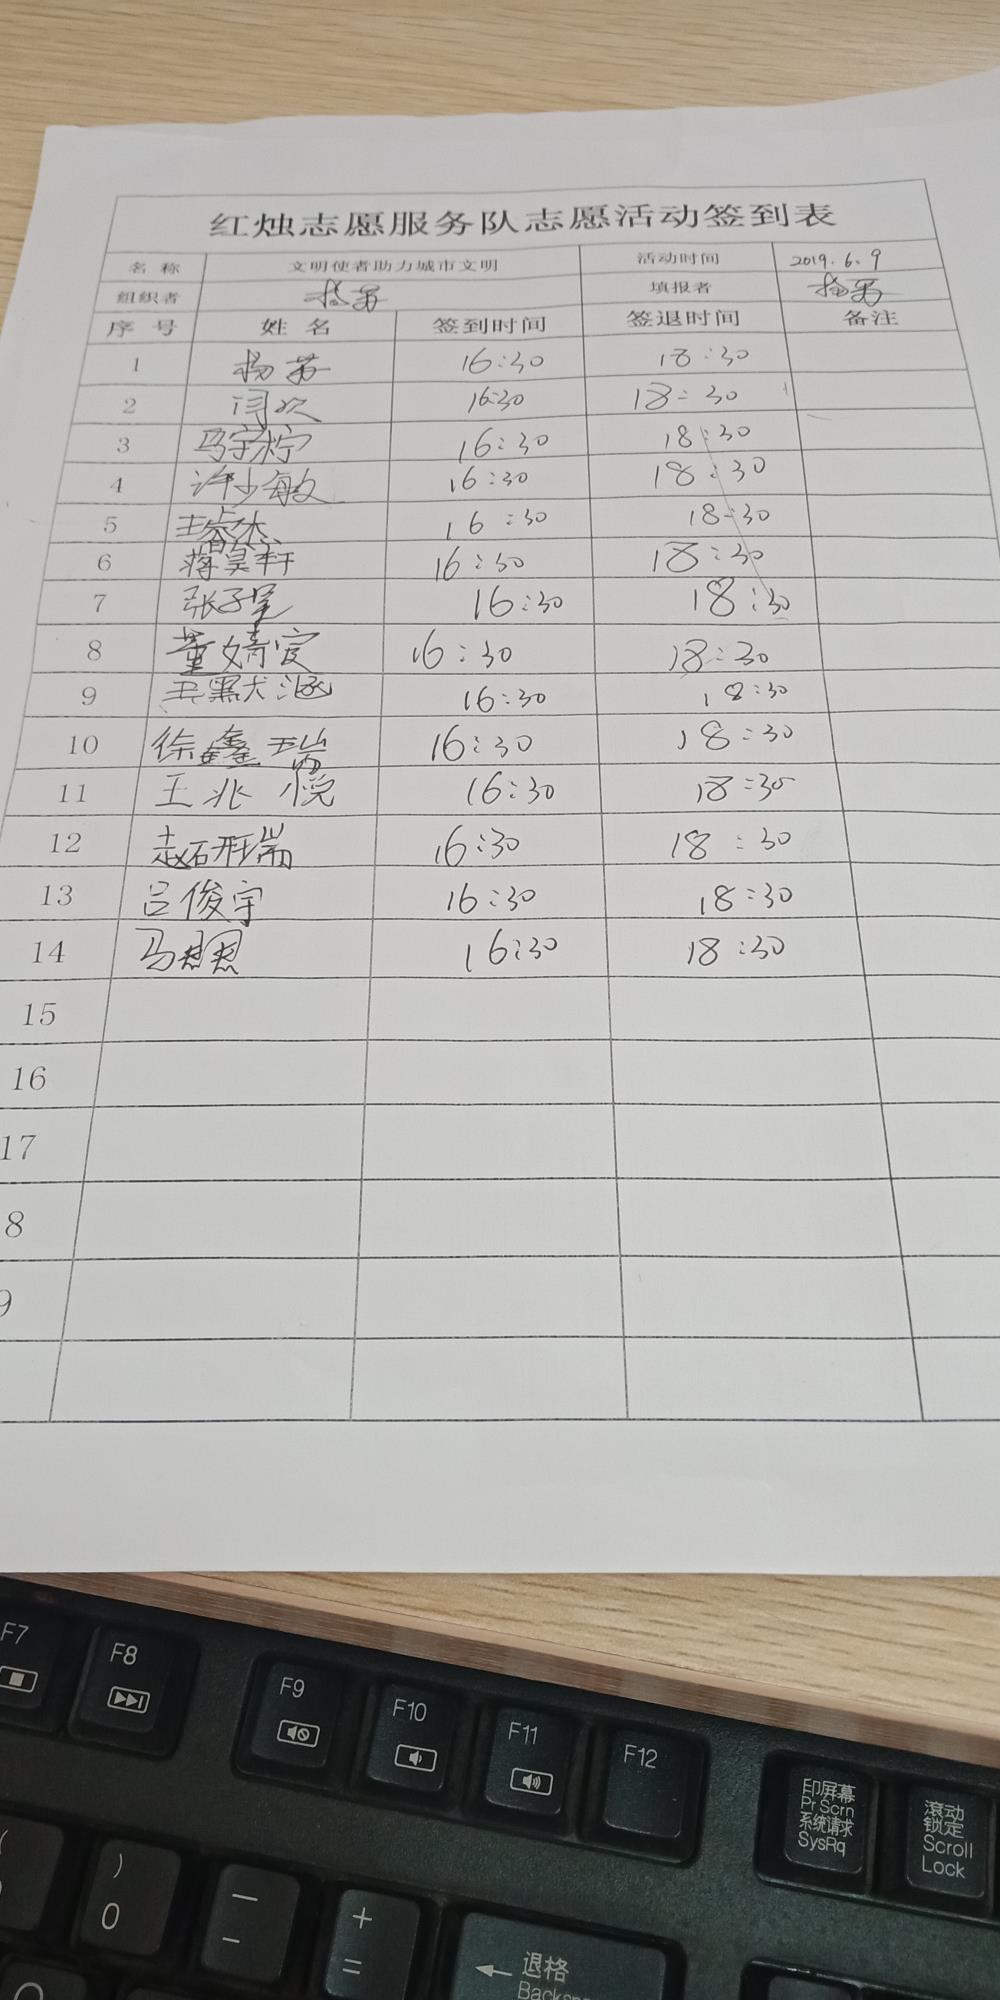 红烛志愿服务队志愿活动签到表
名 称 文明使者助力城市文明 活动时间 2019.6.9
组织者 杨芳 填报者 杨芳
序 号 姓 名 签到时间 签退时间 备注
1 杨芳 16:30 18:30
2 闫欢 16:30 18:30
3 马宇柠 16:30 18:30
4 许少敏 16:30 18:30
5 王睿杰 16:30 18:30
6 蒋昊轩 16:30 18:30
7 张子星 16:30 18:30
8 董婧宸 16:30 18:30
9 王默涵 16:30 18:30
10 徐鑫瑞 16:30 18:30
11 王兆悦 16:30 18:30
12 赵研瑞 16:30 18:30
13 吕俊宇 16:30 18:30
14 马 16:30 18:30
15
16
17
8
9
F7
F8
F9
F10
F11
F12
印屏幕
Pr Scrn
系统请求
SysRq
滚动
锁定
Scroll
Lock
)
0
—
-
+
=
退格